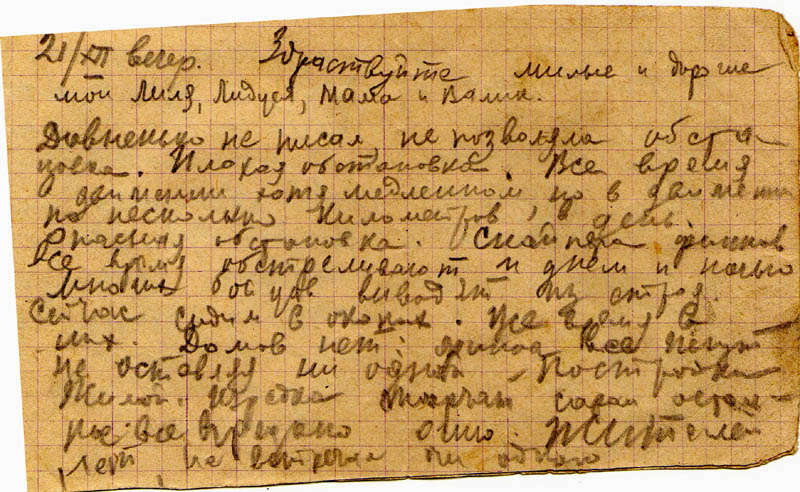 21/XII вечер. Здраствуйте милые и дорогие
мои Лиля, Лидуся, мама и Валик.
Давненько не писал, не позволяла обста
новка. Плохая обстановка. Все время
движении хотя медленном но в движении
по несколько километров в день.
Опасная обстановка. Снайпера финнов
все время обстреливают и днем и ночью
многих бойцов выводят из строя.
Сейчас сидим в окопах. Все время в
них. Домов нет, все
не оставляя ни одной постройки
жилой. Изредка торчат сараи
жителей
нет, не встречал ни одного